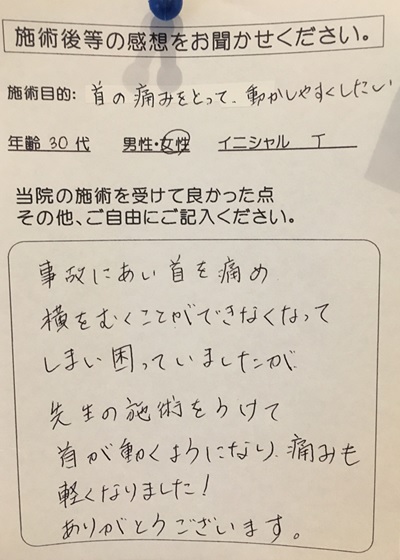 施術後等の感想をお聞かせください。
施術目的: 首の痛みをとって、動かしやすくしたい
年齢 30 代 男性・女性 イニシャル T
当院の施術を受けて良かった点
その他、ご自由にご記入ください。
事故にあい首を痛め
横をむくことができなくなって
しまい困っていましたが
先生の施術をうけて
首が動くようになり、痛みも
軽くなりました!
ありがとうございます。